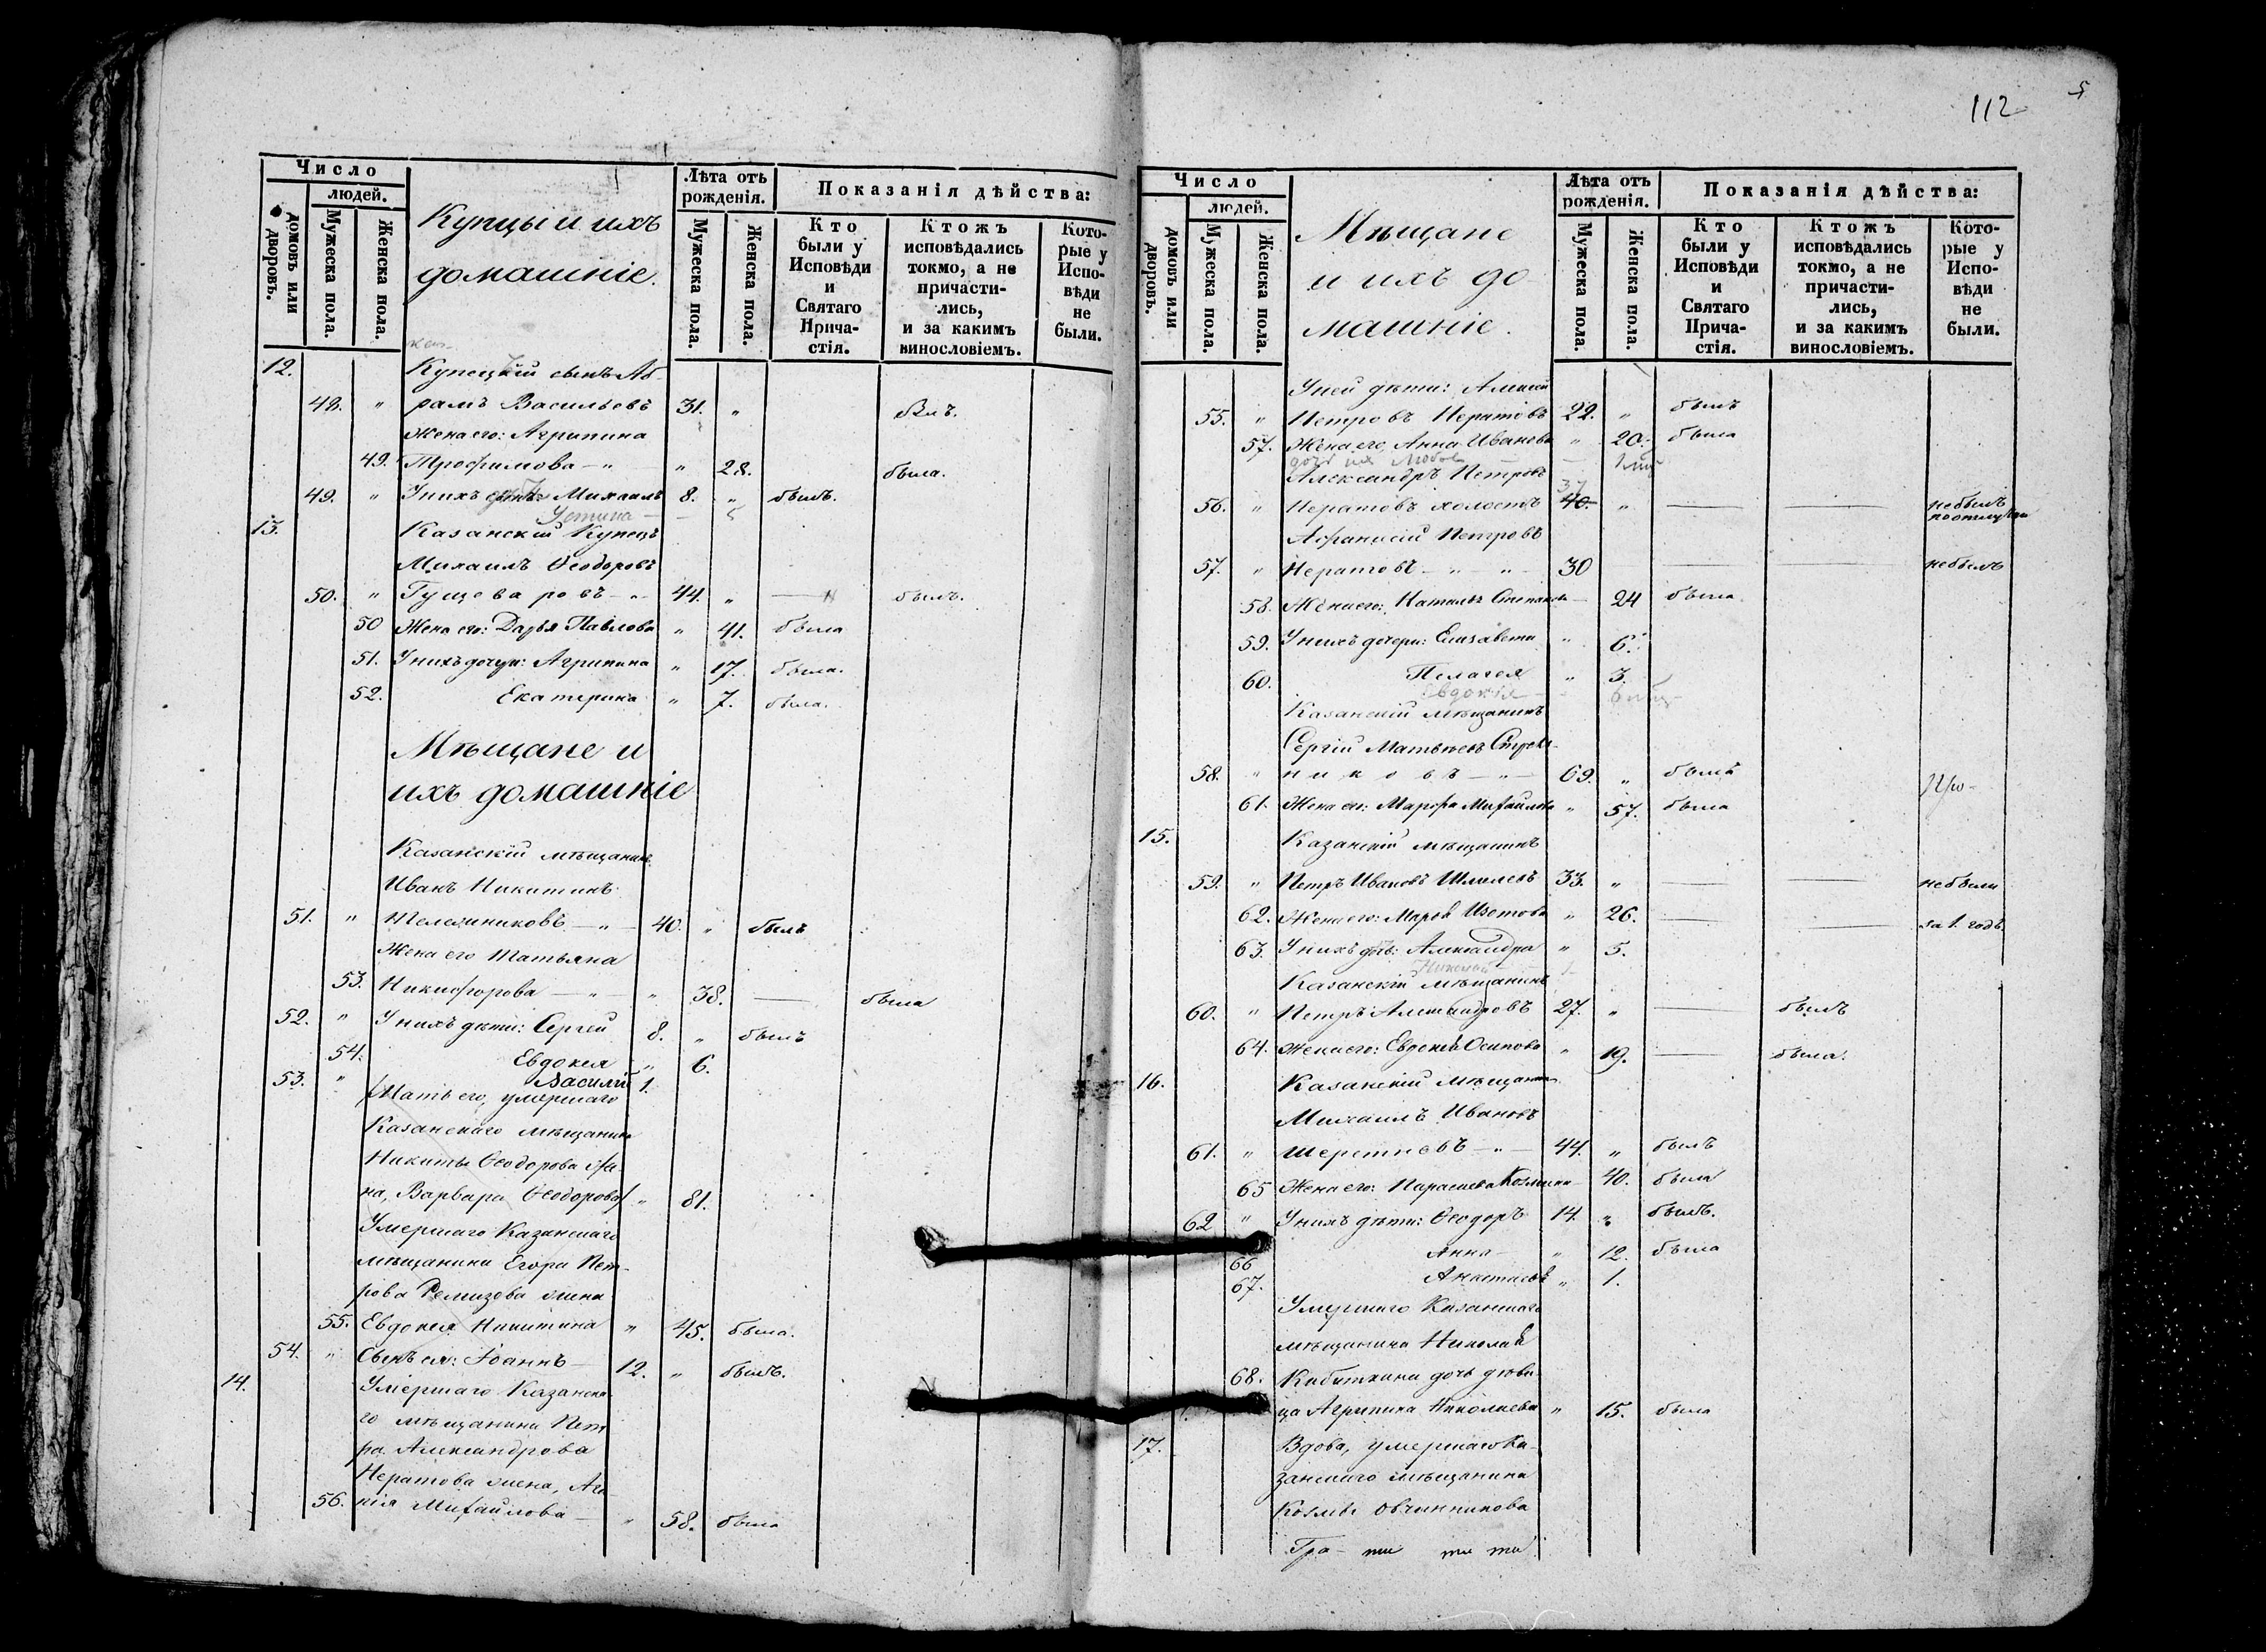 Число
людей.
домовъ или дворовъ.
Мужеска пола.
Женска пола.
Купцы и ихъ
домашніе.
Лѣта отъ
рожденія.
Мужеска пола.
Женска пола.
Показанія дѣйства:
Кто
были у
Исповѣди
и
Святаго
Прича-
стія.
Ктожъ
исповѣдались
токмо, а не
причасти-
лись,
и за какимъ
винословіемъ.
Кото-
рые у
Испо-
вѣди
не
были.
12. Купецкій сынъ Аб-
48. " рамъ Васильевъ 31. " былъ.
Жена его: Агрипина
49. Трофимова - " " 28. была.
49. " У нихъ Михаилъ 8. " былъ.
Устина 5
13. Казанскій Купецъ
Михаилъ Ѳеодоровъ
50. " Гущеваровъ - " 44. " былъ.
50 Жена его: Дарья Павлова " 41. была
51. У нихъ дочери: Агрипина " 17. была.
52. Екатерина " 7. была.
Мѣщане и
ихъ домашніе
Казанскій мѣщанинъ
Иванъ Никитинъ
51. " - " - 40. " былъ
Жена его Татьяна
53. Никифорова - " - " 38. была
52. " У нихъ дѣти: Сергей 8. " былъ
54. Евдокея " 6.
53. " Василій 1.
Мать его, умершаго
Казанскаго мѣщанина
Никиты Ѳеодорова же-
на, Варвара Ѳеодорова " 81.
Умершаго Казанскаго
мѣщанина Егора Пет-
рова Ремизова жена
55. Евдокея Никитина " 45. была.
54. " Сынъ ея: Іоаннъ 12. " былъ.
14. Умершаго Казанска-
го мѣщанина Пет-
ра Александрова
Нератова жена,
56. Михайлова " 58. была
112
5
Число
людей.
домовъ или дворовъ.
Мужеска пола.
Женска пола.
Мѣщане
и ихъ до-
машніе.
Лѣта отъ
рожденія.
Мужеска пола.
Женска пола.
Показанія дѣйства:
Кто
были у
Исповѣди
и
Святаго
Прича-
стія.
Ктожъ
исповѣдались
токмо, а не
причасти-
лись,
и за какимъ
винословіемъ.
Кото-
рые у
Испо-
вѣди
не
были.
У ней дѣти: Алексей
55. " Петровъ Нератовъ 22. " былъ
57. Жена его, Анна Иванова " 20. была
дочь их Любовь
Александръ Петровъ 37
56. " Нератовъ холостъ 40. " небылъ
Афанасій Петровъ
57. " Нератовъ - " - " - 30 небылъ
58. Жена его: Наталья Степанова 24 была.
59. У нихъ дочери: Елизавета " 6.
60. Пелагея " 3.
Евдокія
Казанскій мѣщанинъ
Сергій Матвѣевъ
58. " никовъ - " - 69. " былъ
61. Жена его: Марфа Михайлова " 57. была
15. Казанскій мѣщанинъ
59. " Петръ Ивановъ Шмелевъ 33. " небыли
62. Жена его: Марѳа Изотова " 26. за 1. годъ.
63. У нихъ дочь: Александра " 5.
Николай
Казанскій мѣщанинъ
60. " Петръ Александровъ 27. " былъ
64. Жена его: Евдокея Осипова " 19. была.
16. Казанскій мѣщанинъ
Михаилъ Ивановъ
61. " Шерстневъ - " - 44. " былъ
65 Жена его: Параскева Козмина 40. была
62 " У нихъ дѣти: Ѳеодоръ 14. " былъ.
66 Анна " 12. была
67. Анастасія " 1.
Умершаго Казанскаго
мѣщанина Николая
68. Кибиткина дочь дѣви-
ца Агрипина Николаева " 15. была
17. Вдова, умершаго Ка-
занскаго мѣщанина
Козмы Овчинникова